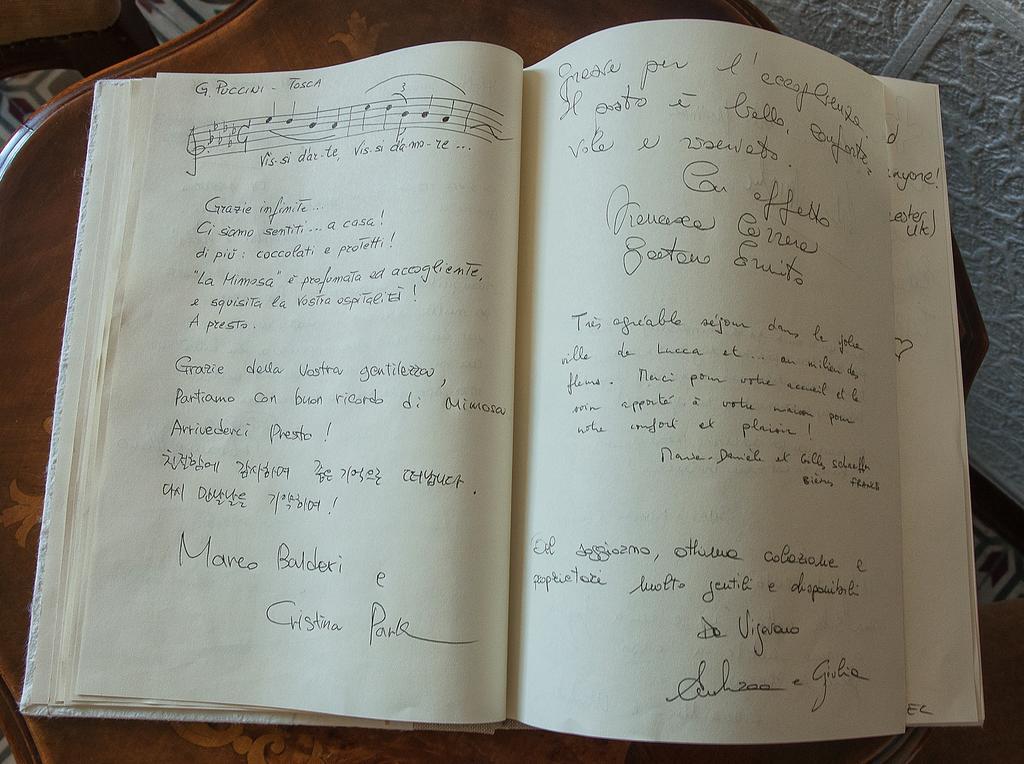 G. PUCCINI - TOSCA
3
Vis-si d'ar-te, vis-si d'a-mo-re ...
Grazie infinite...
Ci siamo sentiti... a casa!
di più: coccolati e protetti!
"La Mimosa" è profumata ed accogliente,
e squisita la vostra ospitalità!
A presto.
Grazie della Vostra gentilezza,
Partiamo con buon ricordo di Mimosa
Arrivederci Presto!
친절함에 감사하며 좋은 기억으로 떠납니다.
다시 만날날을 기약하며!
Marco Balderi
e
Cristina Park
Grazie per l'accoglienza.
Il posto è bello, conforte-
vole e riservato.
Con affetto
Francesca Carrera
Gaetano
Très agréable séjour dans la jolie
ville de Lucca et ... au milieu des
fleurs. Merci pour votre accueil et le
soin apporté à votre maison pour
notre confort et plaisir!
Marie-Danièle et Gilles
Bières FRANCE
soggiorno, ottima colazione e
proprietari molto gentili e disponibili
Da Vigevano
e Giulia
nyone!
UK)
EL